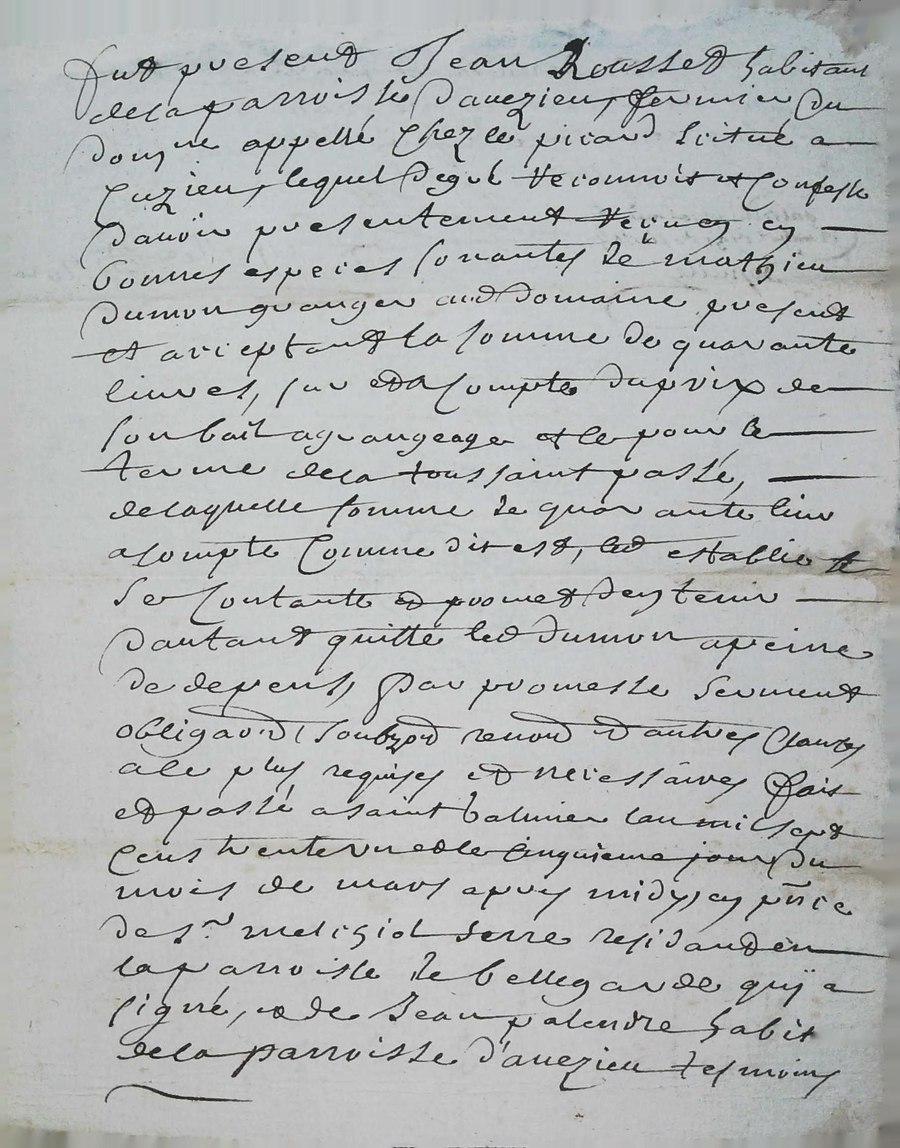 fut present Jean Rousset habitant
dela parroisse d'auezieu, fermier du
domne appellé Chez le picard scitué a
Cuzieu, lequel de gré reconnoit et Confesse
d'auoir presentement receu en
bonnes especes sonantes de mathieu
dumon granger aud domaine present
et acceptant la somme de quarante
liures, sur et a Compte du prix de
son bail a grangeage et le pour le
terme dela toussaint passé,
delaquelle somme de quarante liur
a Compte Comme dit est, led establie
se Contante et promet d'en tenir
d'autant quitte led dumon a peine
de depens, Par promesse serment
obligaon renon d'autres Clauses
ale plus requises et necessaires fait
et passé a saint balmier lan mil sept
Cens trente vn et le Cinquieme jour du
mois de mars apres midy, en pnce
de sr melchiol serre residand en
la parroisse de bellegarde quy a
signé, et de Jean palendre habit
dela parroisse d'auezieu tesmoins